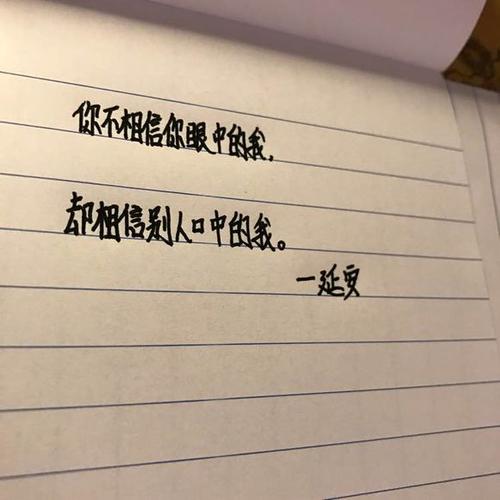 你不相信你眼中的我,
却相信别人口中的我。
一延安